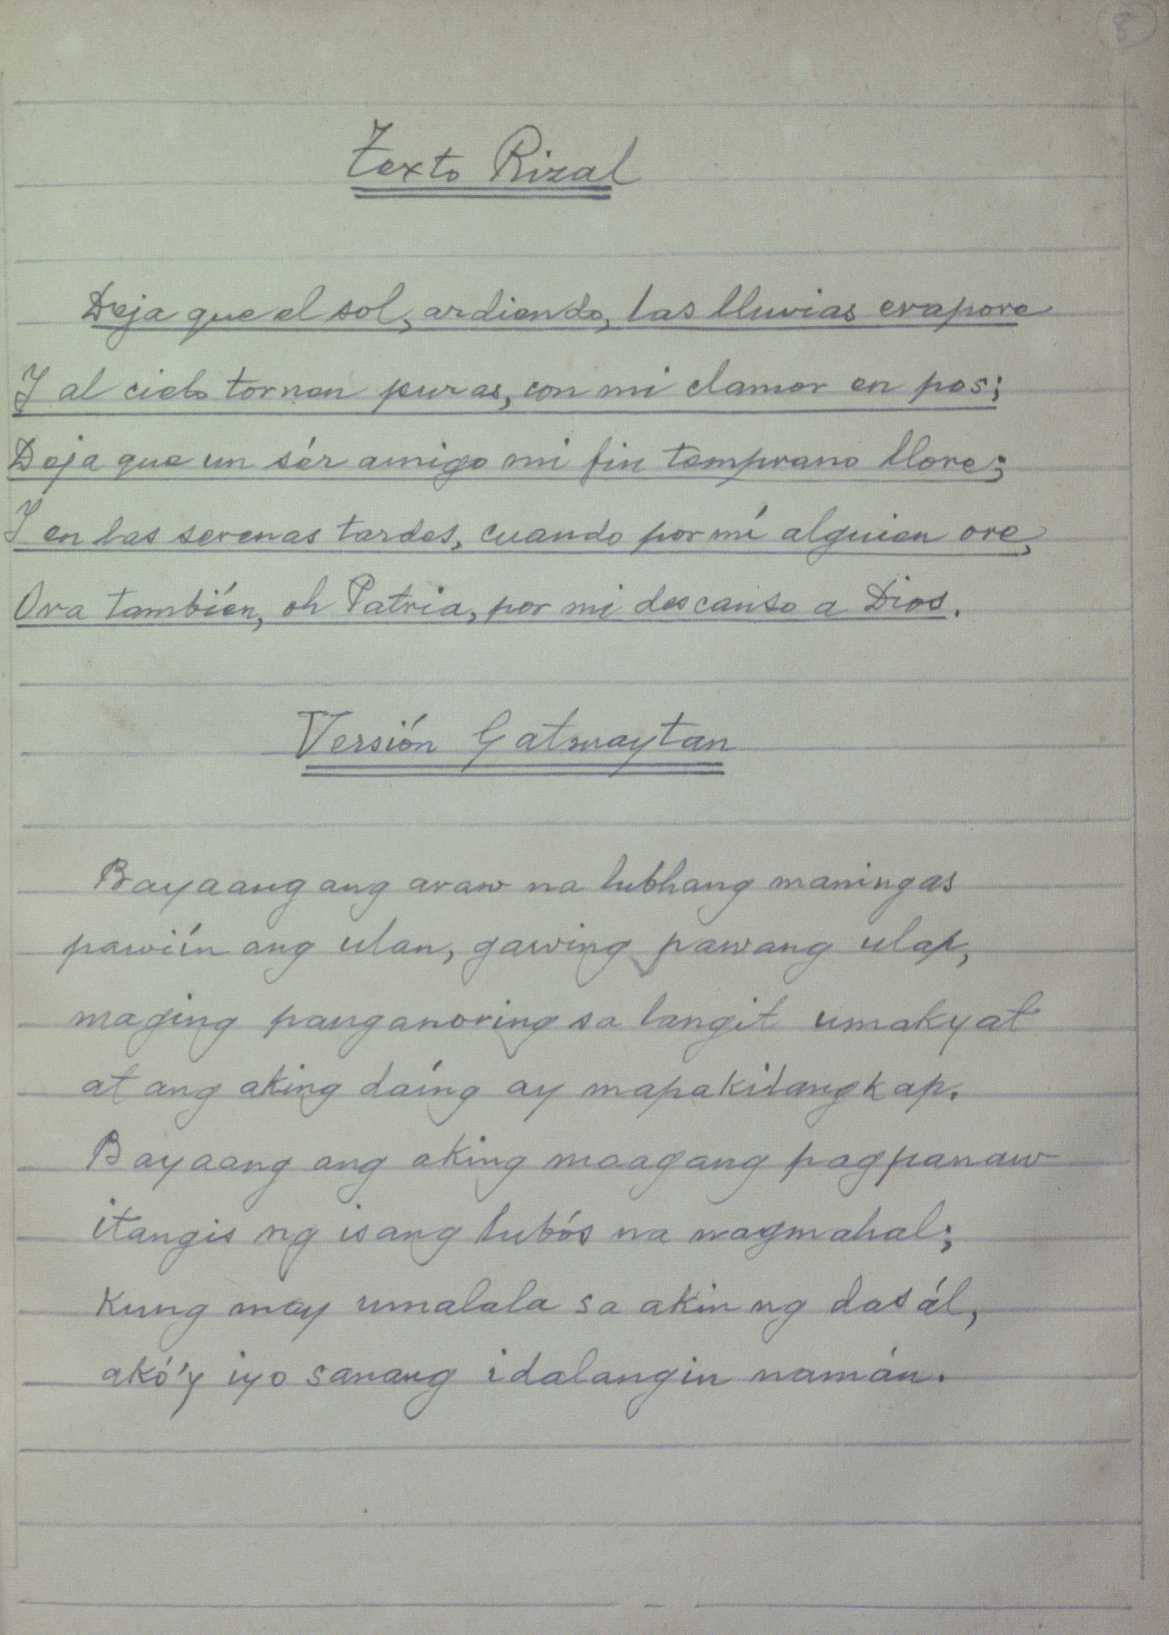 8
Texto Rizal
Deja que el sol, ardiendo, las lluvias evapore
Y al cielo tornen puras, con mi clamor en pos;
Deja que un sér amigo mi fin temprano llore;
Y en las serenas tardes, cuando por mí alguien ore,
Ora también, oh Patria, por mi descanso a Dios.
Versión Gatmaytan
Bayaang ang araw na lubhang maningas
pawiín ang ulan, gawing pawang ulap,
maging panganoring sa langit umakyat
at ang aking daíng ay mapakilangkap.
Bayaang ang aking maagang pagpanaw
itangis ng isang lubós na nagmahal;
Kung may umalala sa akin ng dasál,
akó'y iyo sanang idalangin namán.